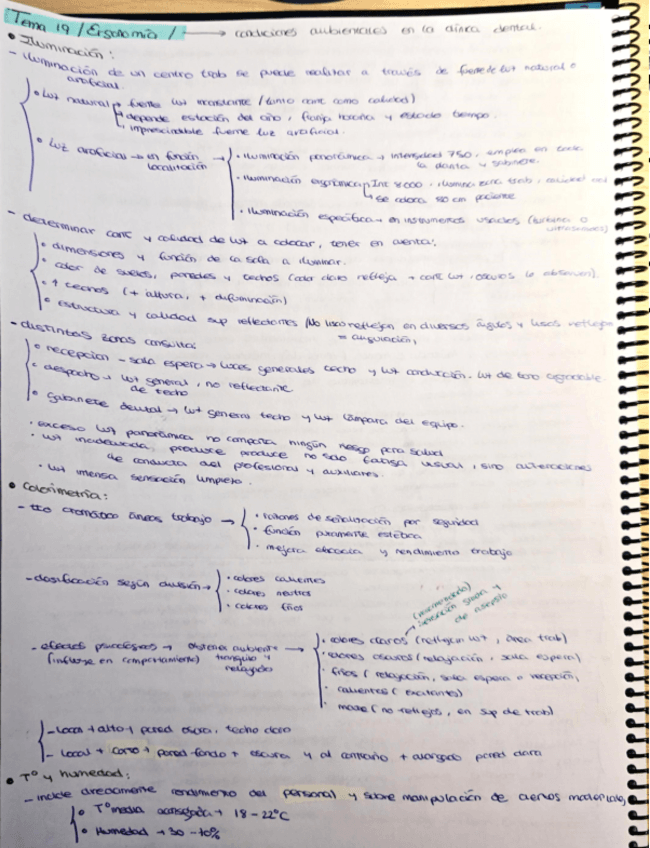 Tema 19 / Ergonomía / → condiciones ambientales en la clínica dental.
• Iluminación:
- iluminación de un centro trab se puede realizar a través de fuente de luz natural o
artificial.
• Luz natural → fuente luz inconstante / tanto cant como calidad)
↳ depende estación del año, franja horaria y estado tiempo.
↳ imprescindible fuente luz artificial.
• Luz artificial → en función → • iluminación panorámica → intensidad 750, amplia en toda
localización la planta y gabinete.
• Iluminación ergonómica → Int 8000 · ilumina zona trab,
↳ se coloca 80 cm paciente
• Iluminación específica → en instrumentos usados (turbina o
ultrasonidos)
- determinar cant y calidad de luz a colocar, tener en cuenta:
• dimensiones y función de la sala a iluminar.
• color de suelos, paredes y techos (color claro refleja + cant luz, oscuros la absorben).
• ↑ techos (+ altura, + difuminación)
• estructura y calidad sup reflectantes / No lisas reflejan en diversos ángulos y lisas reflejan
= angulación,
- distintas zonas consulta:
• recepción - sala espera → luces generales techo y luz conducción. luz de tono agradable.
• despacho → luz general, no reflectante
de techo
• Gabinete dental → luz general techo y luz lámpara del equipo.
• exceso luz panorámica no comporta ningún riesgo para salud
• luz inadecuada, produce produce no solo fatiga visual, sino alteraciones
de conducta del profesional y auxiliares.
• luz intensa sensación limpieza.
• Colorimetría:
- tto cromático áreas trabajo → • razones de señalización por seguridad
• función puramente estética
• mejora eficacia y rendimiento trabajo
- clasificación según división → • colores calientes
• colores neutros
• colores fríos
sensación
de asepsia
- efectos psicológicos → obtener ambiente → • colores claros (reflejan luz, área trab)
(influye en comportamiento) tranquilo y • colores oscuros (relajación, sala espera)
relajado • fríos (relajación, sala espera o recepción,
• calientes (excitantes)
• mate (no reflejos, en sup de trab)
- Local + alto → pared oscura, techo claro
- Local + corto → pared fondo + oscura y al contrario + alargado pared clara
• Tº y humedad:
- incide directamente rendimiento del personal y sobre manipulación de ciertos materiales
• Tº media aconsejada → 18-22ºC
• Humedad → 30-70%